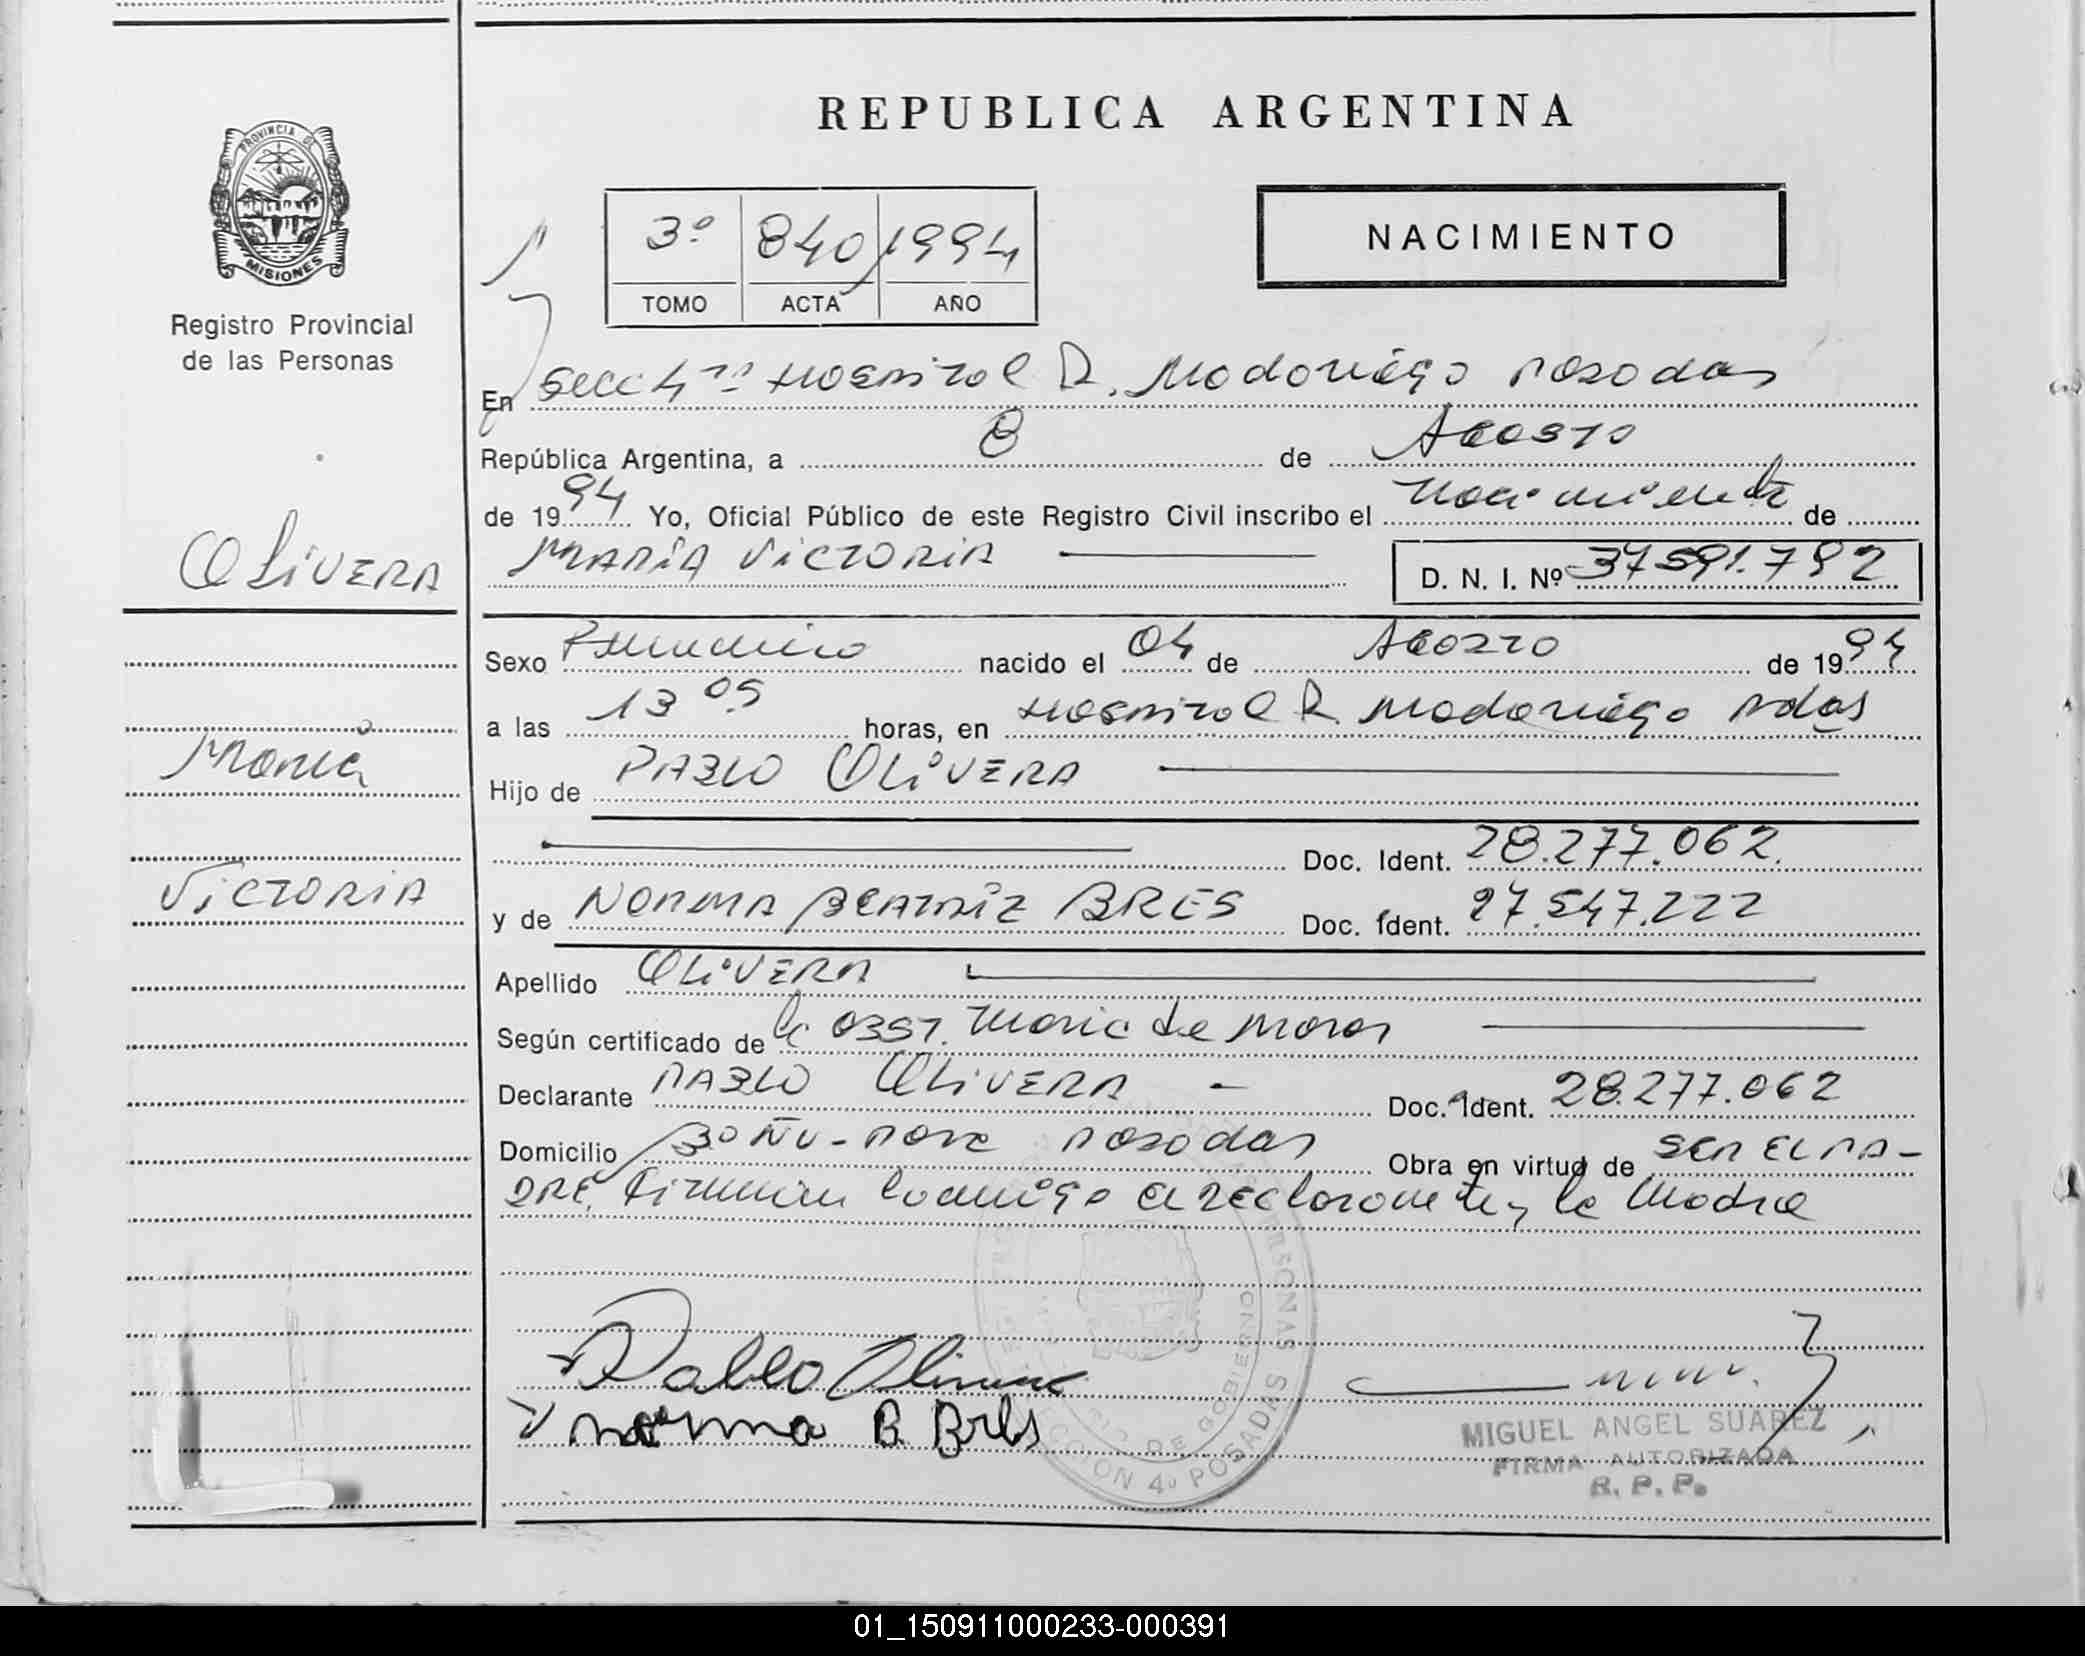 REPUBLICA ARGENTINA
PROVINCIA DE
MISIONES
Registro Provincial
de las Personas
3º 840 1994
TOMO ACTA AÑO
NACIMIENTO
En Secc 4ª Hospital R. Madariaga Posadas
República Argentina, a 8 de Agosto
de 1994 Yo, Oficial Público de este Registro Civil inscribo el nacimiento de
MARIA VICTORIA
D. N. I. Nº 37.591.792
OLIVERA
María
VICTORIA
Sexo Femenino nacido el 04 de Agosto de 1994
a las 13 05 horas, en Hospital R. Madariaga Pdas
Hijo de PABLO OLIVERA
Doc. Ident. 28.277.062.
y de NORMA BEATRIZ BRES Doc. Ident. 27.547.222
Apellido OLIVERA
Según certificado de la OBST. Maria de Moros
Declarante PABLO OLIVERA - Doc. Ident. 28.277.062
Domicilio posadas Obra en virtud de SER EL PA-
DRE, firman conmigo el declarante y la Madre
Pablo Olivera
norma B Bres
DE GOBIERNO
CCION 4º POSADAS
MIGUEL ANGEL SUAREZ
FIRMA AUTORIZADA
R. P. P.
01_150911000233-000391